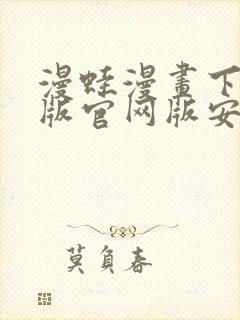 漫蛙漫畫下
版官网版安
莫負春